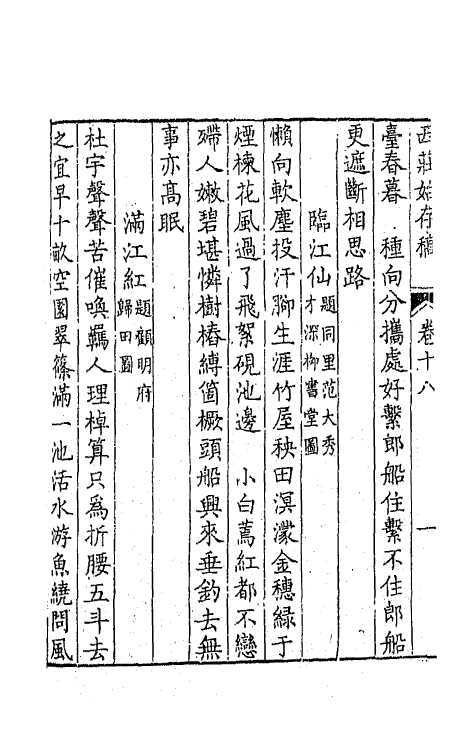 西莊始存稿 卷十八 一
臺春暮 種向分攜處好繫郎船住繫不住郎船
更遮斷相思路
臨江仙 題同里范大秀才深柳書堂圖
懶向軟塵投汗腳生涯竹屋秧田溟濛金穗綠于
煙楝花風過了飛絮硯池邊 小白蔫紅都不戀
殢人嫩碧堪憐樹樁縛箇橛頭船興來垂釣去無
事亦高眠
滿江紅 題顧明府歸田圖
杜宇聲聲苦催喚羈人理棹算只為折腰五斗去
之宜早十畝空園翠篠滿一池活水游魚繞問風